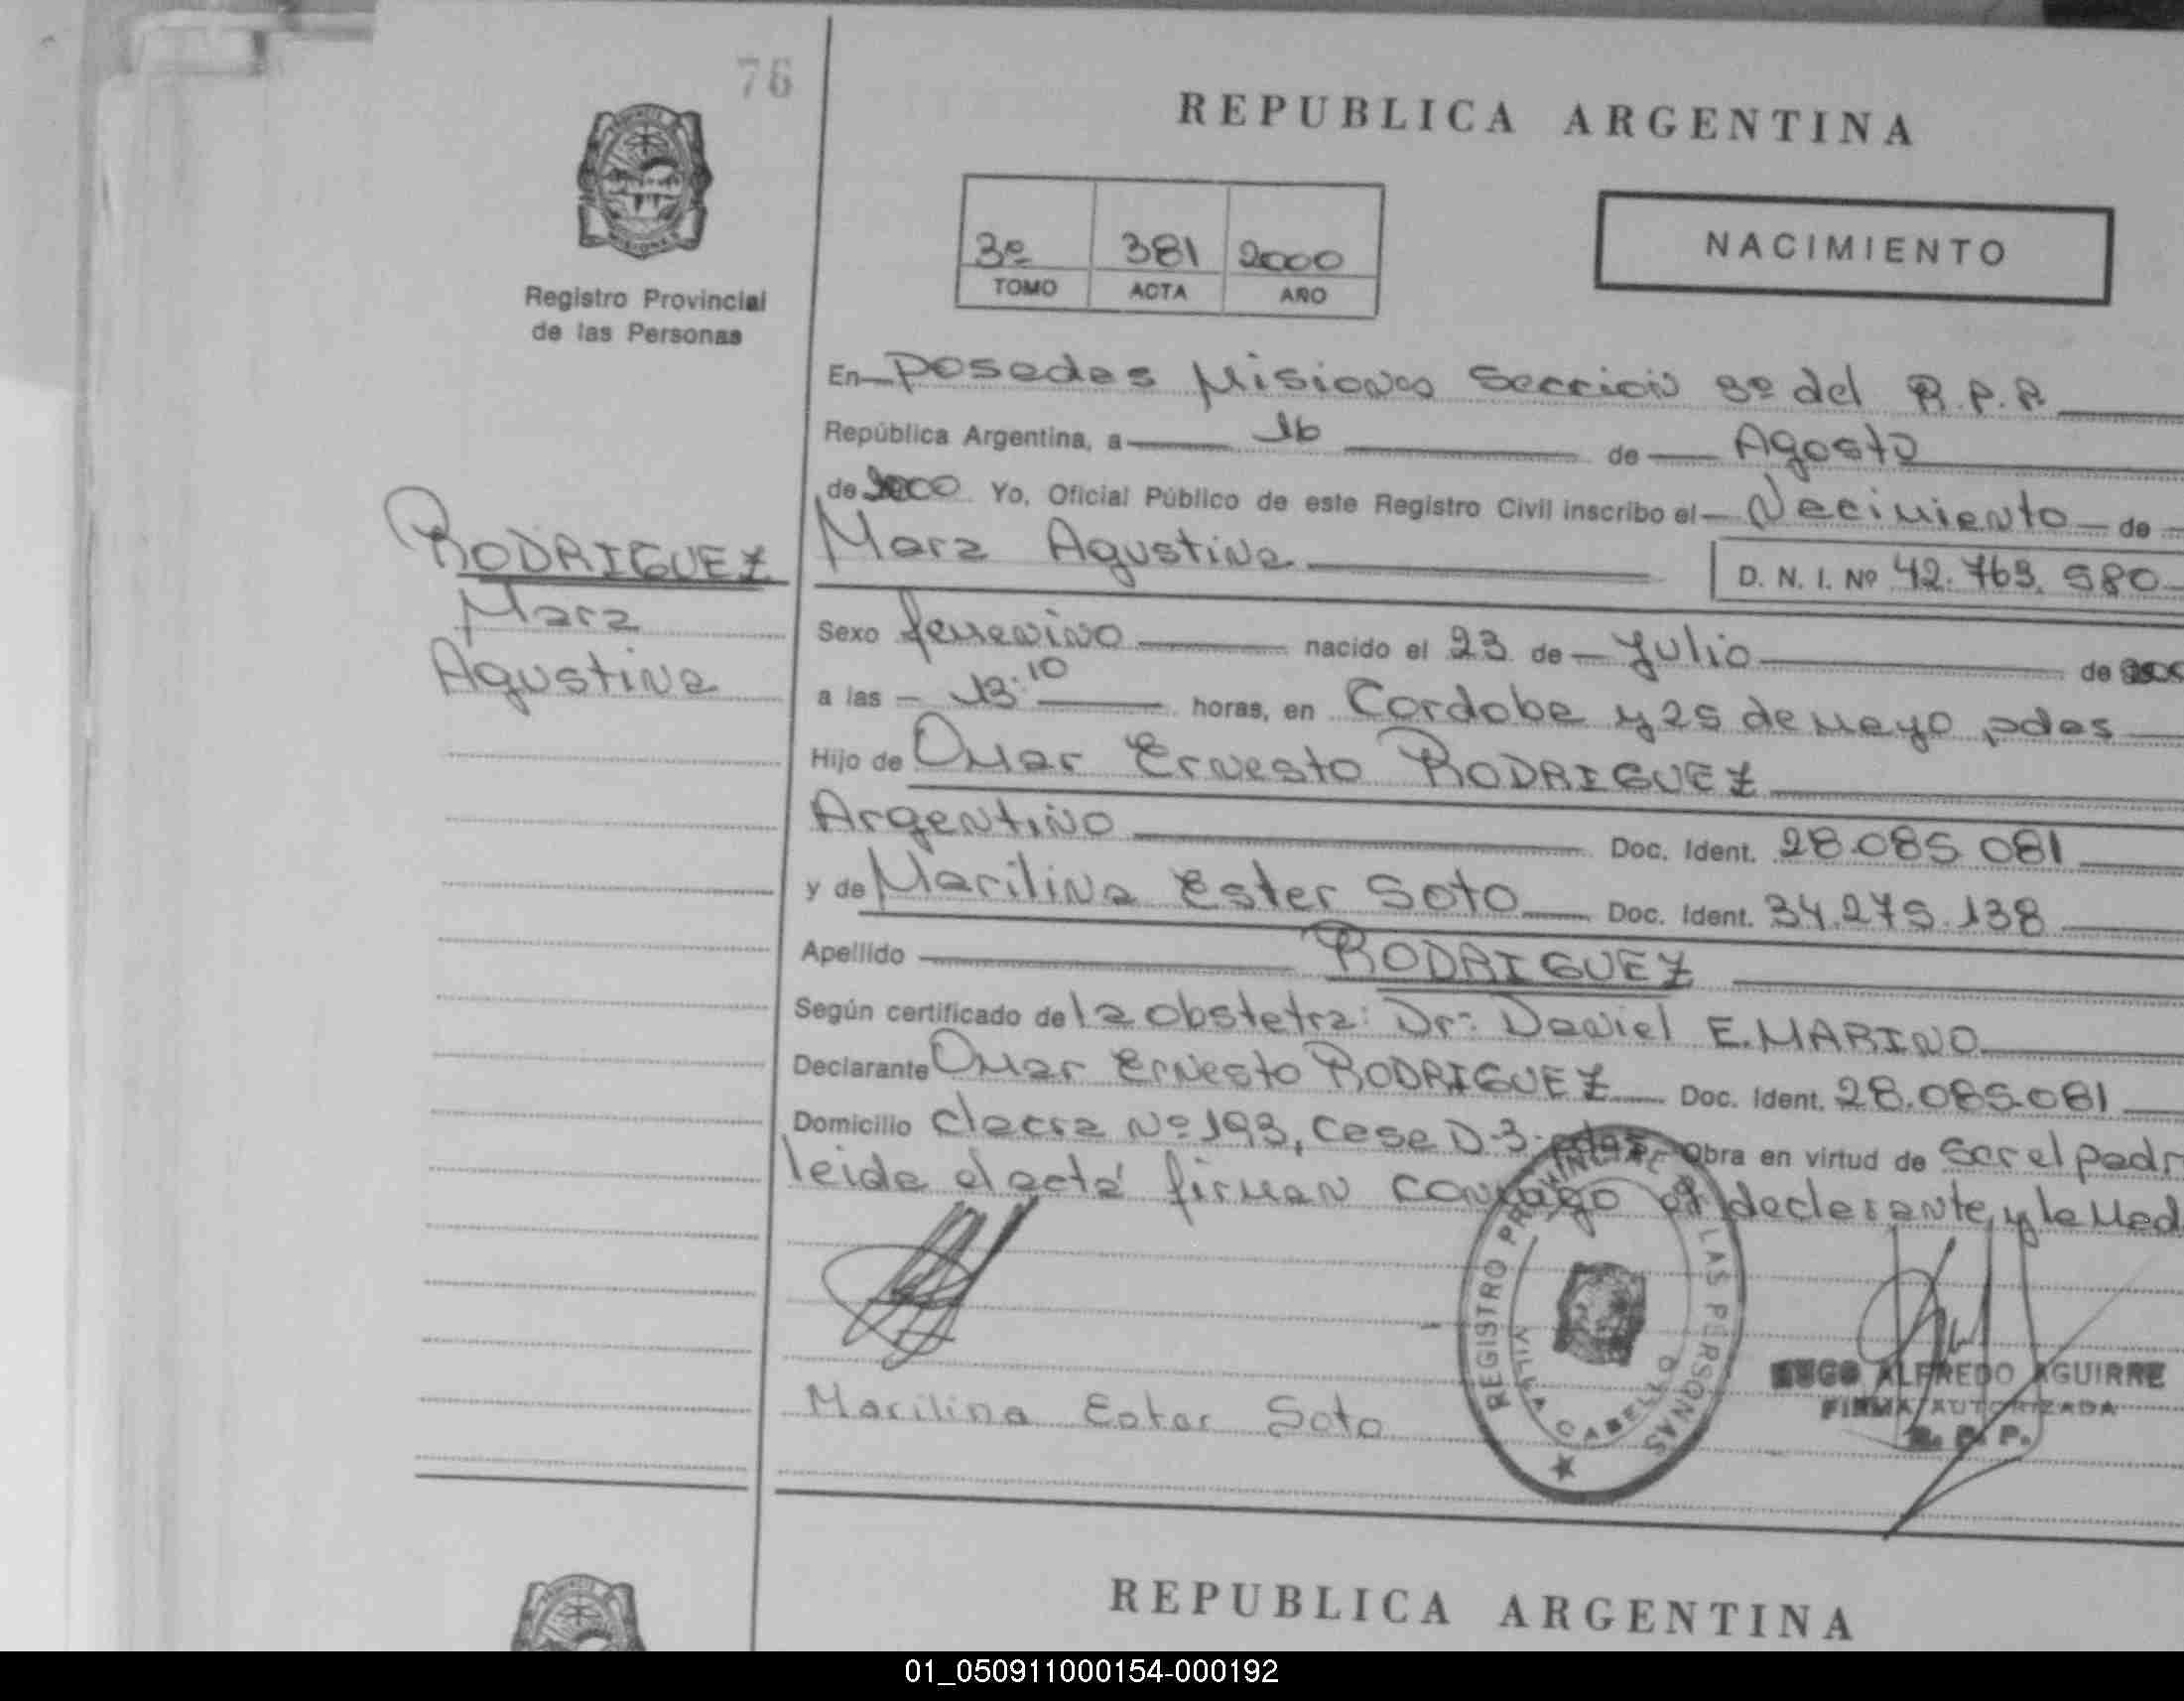 76
REPUBLICA ARGENTINA
MISIONES
Registro Provincial
de las Personas
3º 381 2000
TOMO ACTA AÑO
NACIMIENTO
En Posadas Misiones Sección 3º del R.P.P.
República Argentina, a 16 de Agosto
de 2000 Yo, Oficial Público de este Registro Civil inscribo el Nacimiento de
Mara Agustina D. N. I. Nº 42.763.580
RODRIGUEZ
Mara
Agustina
Sexo femenino nacido el 23 de Julio de
a las 13:10 horas, en Cordoba y 25 de mayo pdas
Hijo de Omar Ernesto RODRIGUEZ
Argentino Doc. Ident. 28.085.081
y de Marilina Ester Soto Doc. Ident. 34.275.138
Apellido RODRIGUEZ
Según certificado de la obstetra: Dr: Daniel E. MARINO
Declarante Omar Ernesto RODRIGUEZ Doc. Ident. 28.085.081
Domicilio chacra Nº 193, casa D-3- pdas Obra en virtud de ser el padr
leida el acta firman conmigo el declarante y la Mad
REGISTRO PROVINCIAL DE LAS PERSONAS
VILLA CABELLO
HUGO ALFREDO AGUIRRE
FIRMA AUTORIZADA
R. P. P.
Marilina Ester Soto
REPUBLICA ARGENTINA
01_050911000154-000192